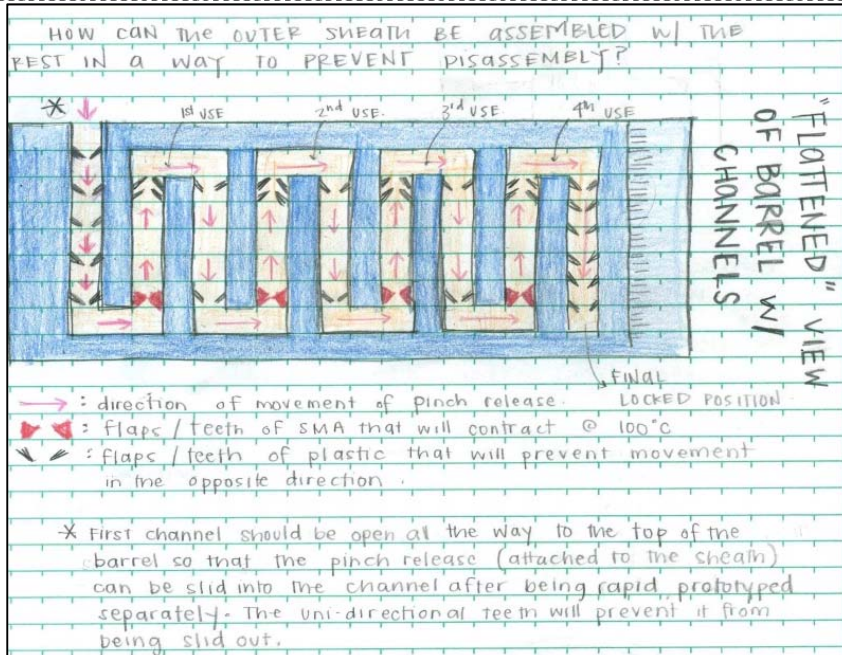 HOW CAN THE OUTER SHEATH BE ASSEMBLED W/ THE
REST IN A WAY TO PREVENT DISASSEMBLY?
*
1st USE
2nd USE.
3rd USE
4th USE
"FLATTENED" VIEW
OF BARREL W/
CHANNELS
FINAL
LOCKED POSITION
: direction of movement of pinch release.
: flaps / teeth of SMA that will contract @ 100°C
: flaps / teeth of plastic that will prevent movement
in the opposite direction.
* First channel should be open all the way to the top of the
barrel so that the pinch release (attached to the sheath)
can be slid into the channel after being rapid prototyped
separately. The uni-directional teeth will prevent it from
being slid out.